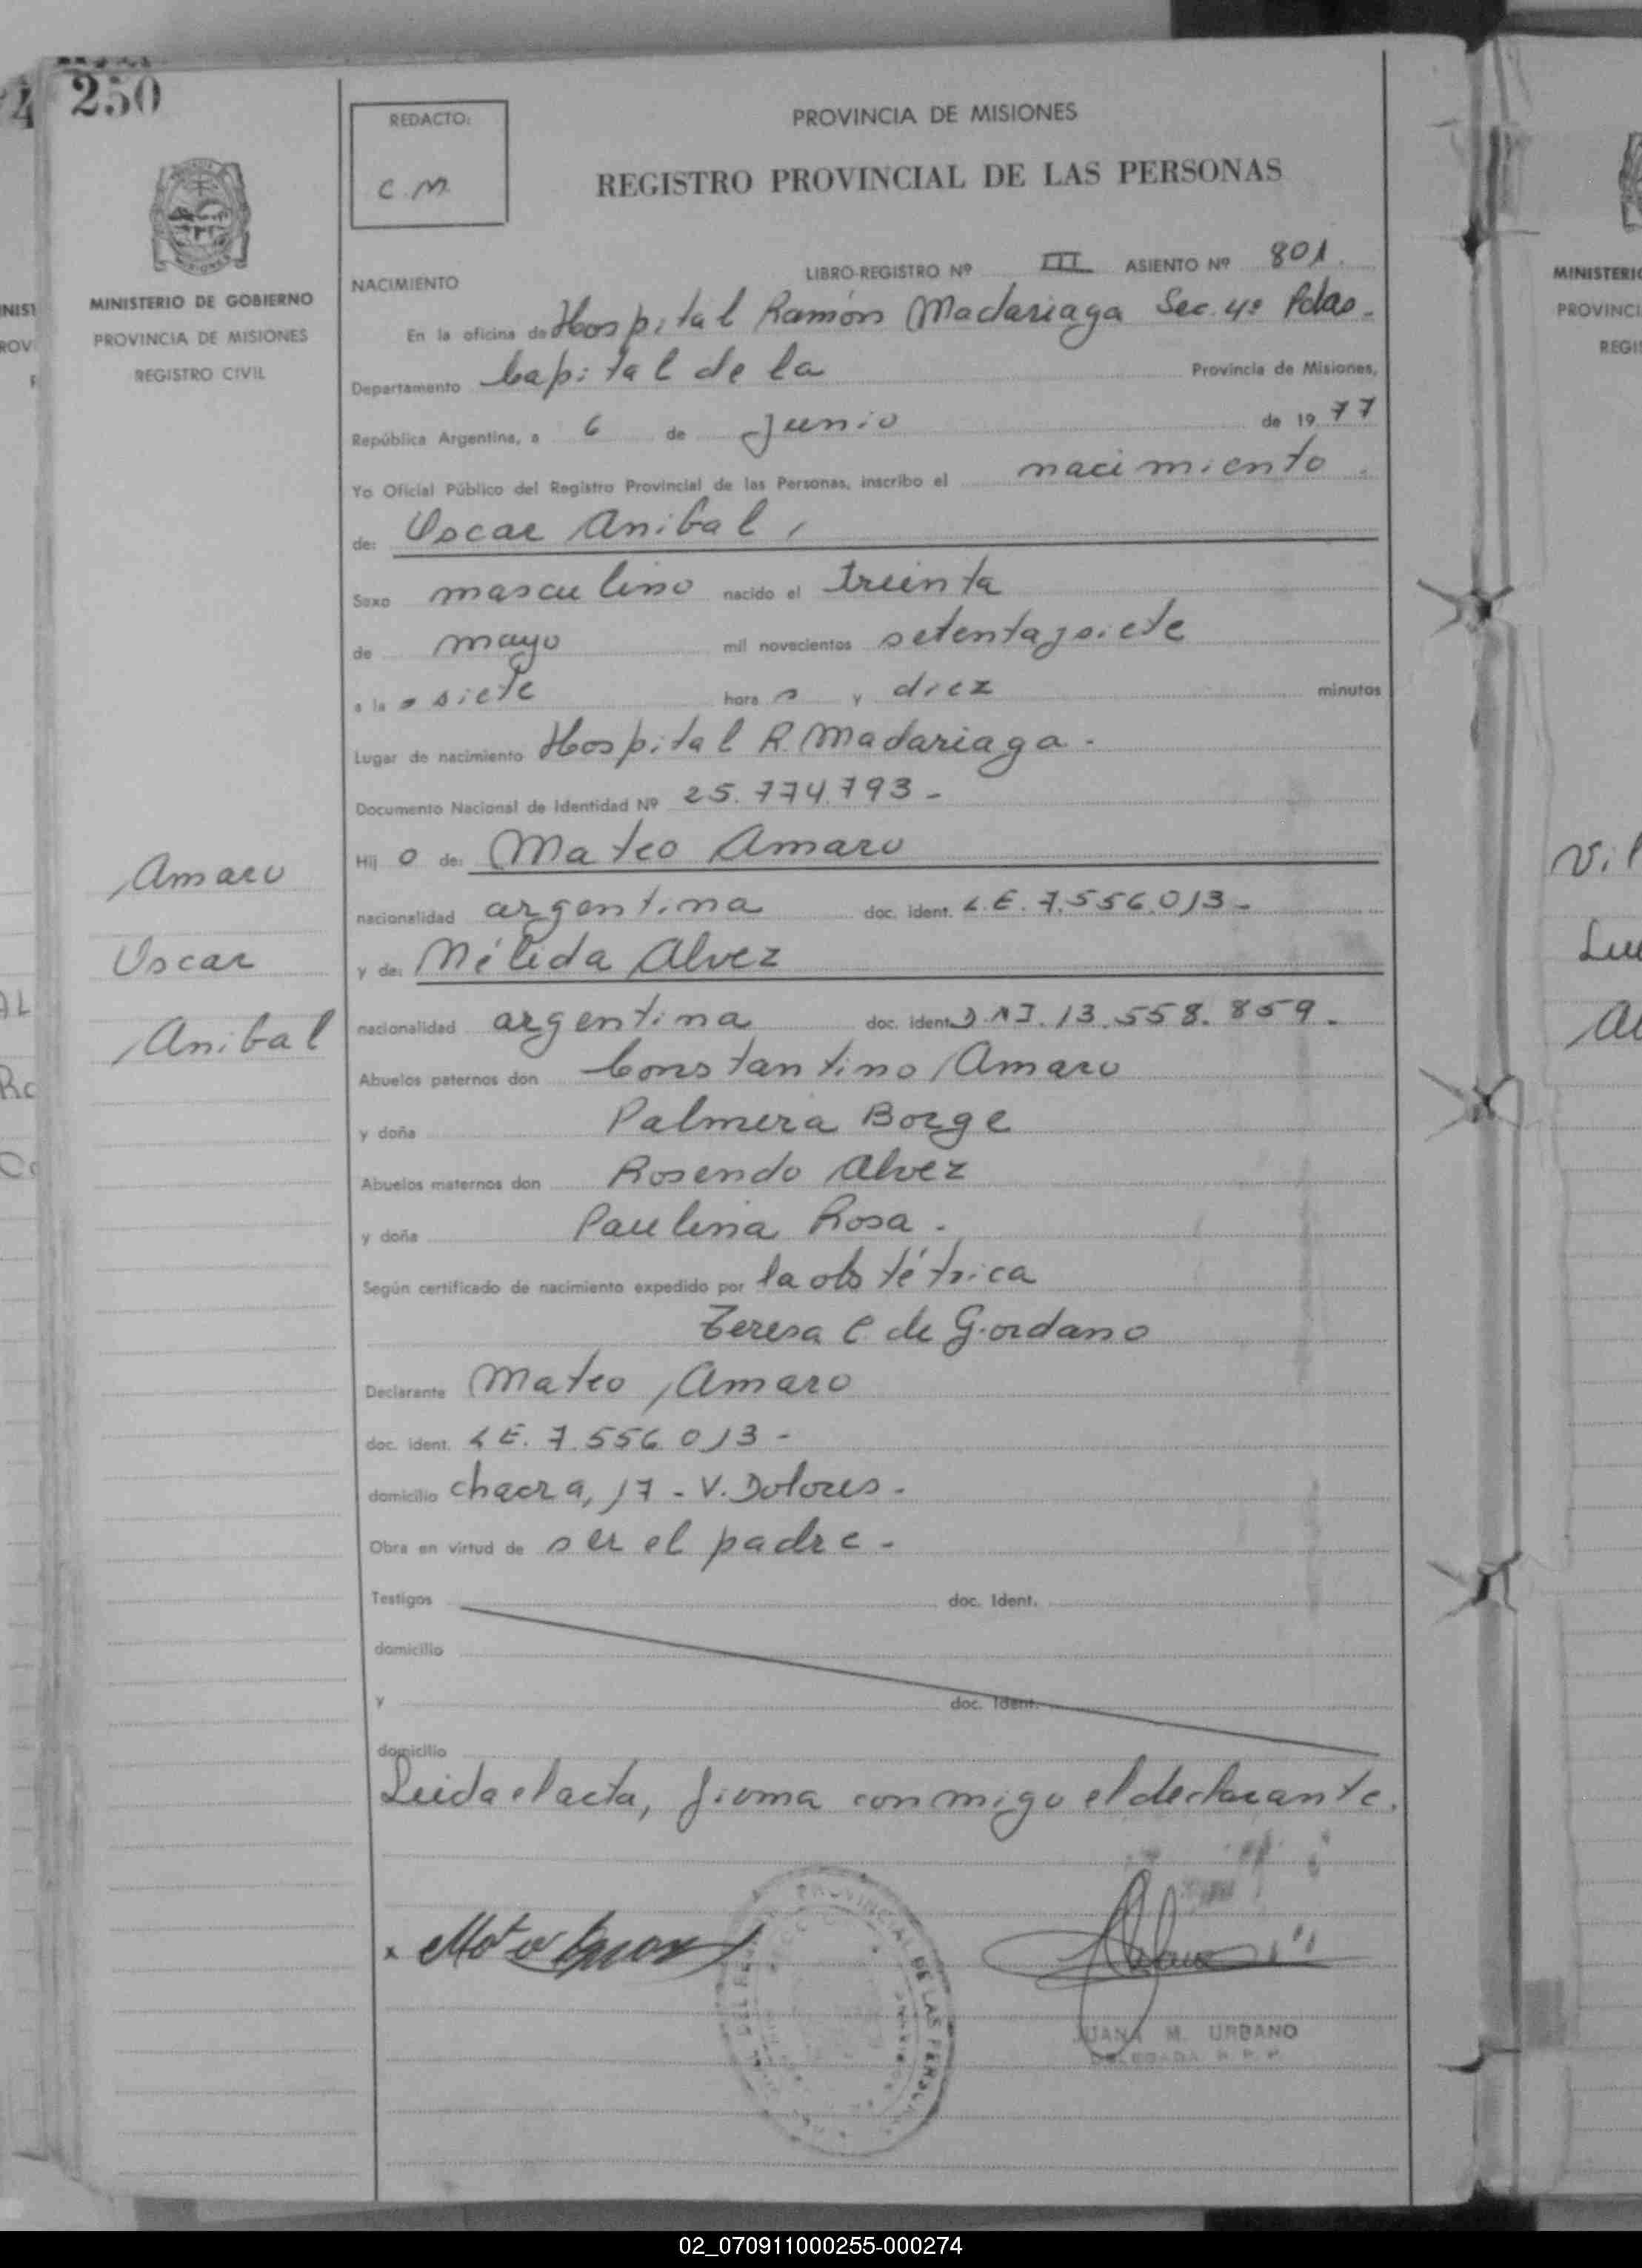 250
REDACTO:
C.M.
MINISTERIO DE GOBIERNO
PROVINCIA DE MISIONES
REGISTRO CIVIL
Amaro
Oscar
Anibal
PROVINCIA DE MISIONES
REGISTRO PROVINCIAL DE LAS PERSONAS
NACIMIENTO LIBRO-REGISTRO Nº III ASIENTO Nº 801.
En la oficina de Hospital Ramón Madariaga Sec. 4º Pdas.
Departamento Capital de la Provincia de Misiones,
República Argentina, a 6 de Junio de 1977
Yo Oficial Público del Registro Provincial de las Personas, inscribo el nacimiento.
de: Oscar Anibal,
Sexo masculino nacido el treinta
de mayo mil novecientos setentaysiete
a la s siete hora s y diez minutos
Lugar de nacimiento Hospital R. Madariaga.
Documento Nacional de Identidad Nº 25.774.793-
Hij o de: Mateo Amaro
nacionalidad argentina doc. ident. L.E. 7.556.013-
y de: Nélida Alvez
nacionalidad argentina doc. ident. D.N.I. 13.558.859.
Abuelos paternos don Constantino Amaro
y doña Palmera Borge
Abuelos maternos don Rosendo Alvez
y doña Paulina Rosa.
Según certificado de nacimiento expedido por la obstétrica
Teresa C. de Giordano
Declarante Mateo Amaro
doc. ident. L.E. 7.556.013-
domicilio chacra, 17 - V. Dolores.
Obra en virtud de ser el padre-
Testigos doc. Ident.
domicilio
y doc. Ident.
domicilio
Leida el acta, firma conmigo el declarante.
x
PROVINCIAL DE LAS PERSONAS
JUANA M. URBANO
DELEGADA R. P. P.
MINISTERI
PROVINCI
REGI
02_070911000255-000274